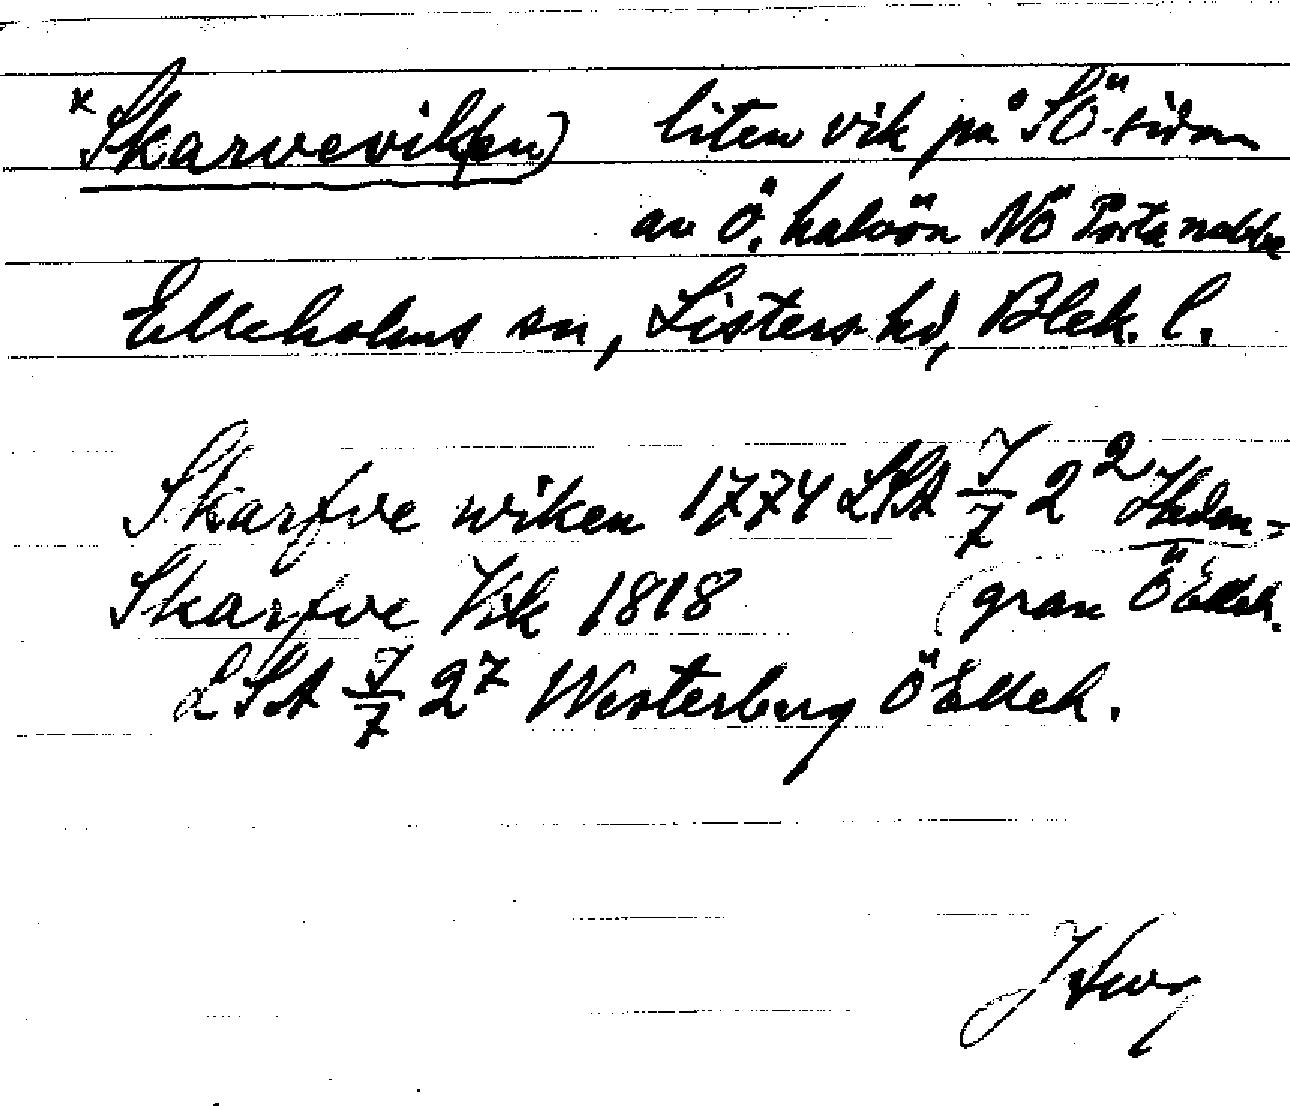 *Skarvevik(en) liten vik på SÖ-sidan
av Ö. halvön NÖ Porta nabbe
Elleholms sn, Listers hd, Blek. l.
Skarfve wiken 1774 LSA J/7 2² Heden=
Skarfve Vik 1818 (gran Ö Elleh.
LSA J/7 2⁷ Westerberg Ö Elleh.